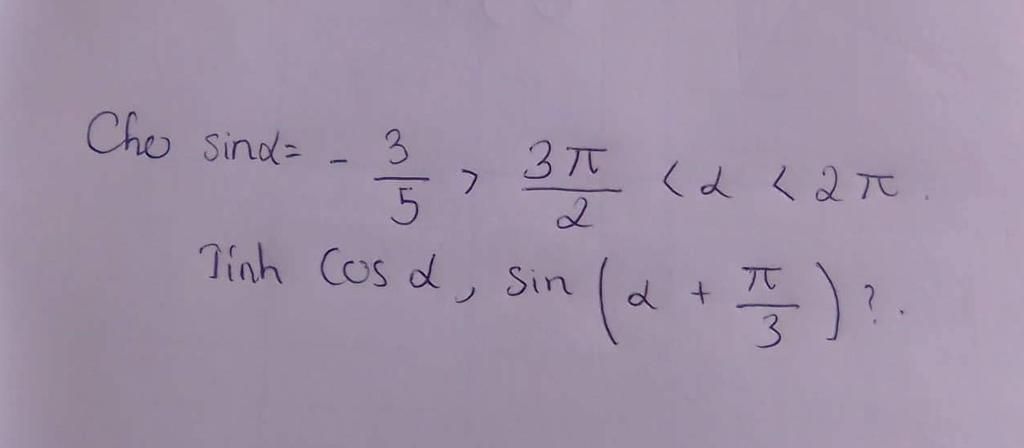 Cho sinα = - 3/5, 3π/2 < α < 2π.
Tính Cos α, sin (α + π/3)?.